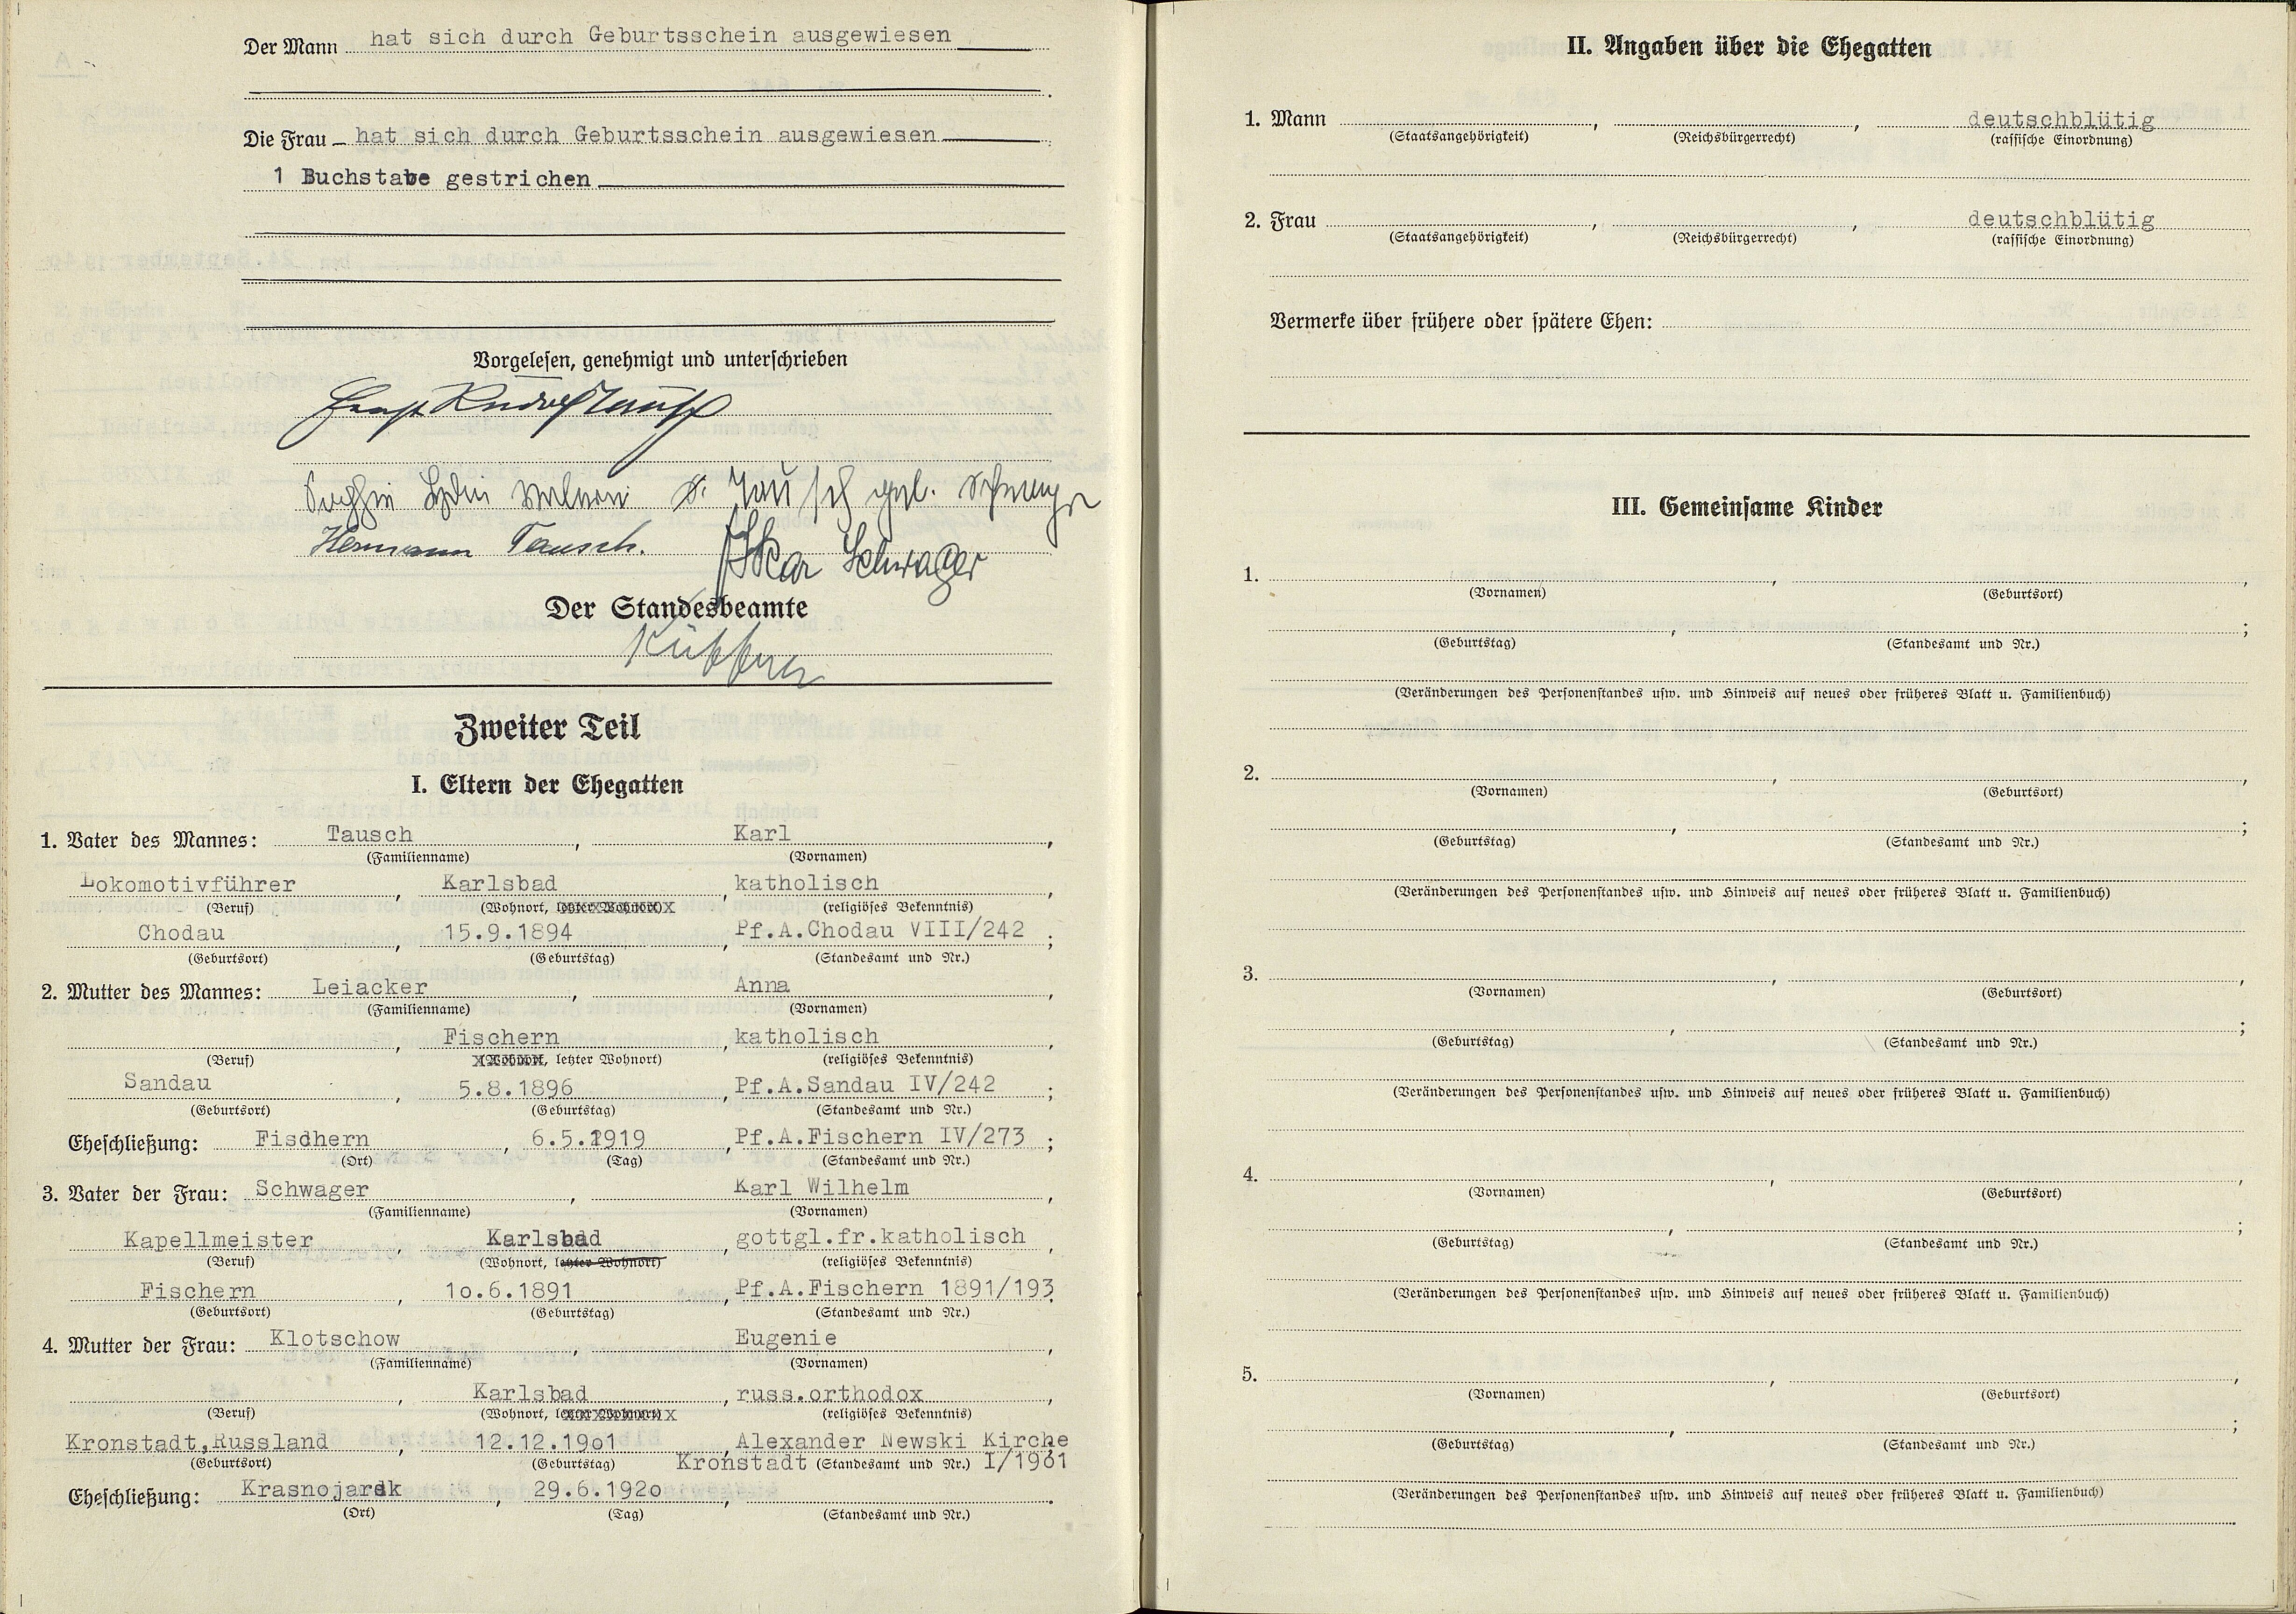 Der Mann hat sich durch Geburtsschein ausgewiesen
Die Frau hat sich durch Geburtsschein ausgewiesen
1 Buchstabe gestrichen
Vorgelesen, genehmigt und unterschrieben
Ernst Rudolf Tausch
Sophie Lydia Valerie Tausch geb. Schwager
Hermann Tausch. Oskar Schwager
Der Standesbeamte
Zweiter Teil
I. Eltern der Ehegatten
1. Vater des Mannes: Tausch, Karl,
(Familienname) (Vornamen)
Lokomotivführer, Karlsbad, katholisch,
(Beruf) (Wohnort, letzter Wohnort) (religiöses Bekenntnis)
Chodau, 15.9.1894, Pf.A.Chodau VIII/242;
(Geburtsort) (Geburtstag) (Standesamt und Nr.)
2. Mutter des Mannes: Leiacker, Anna,
(Familienname) (Vornamen)
, Fischern, katholisch,
(Beruf) (Wohnort, letzter Wohnort) (religiöses Bekenntnis)
Sandau, 5.8.1896, Pf.A.Sandau IV/242;
(Geburtsort) (Geburtstag) (Standesamt und Nr.)
Eheschließung: Fisdhern, 6.5.1919, Pf.A.Fischern IV/273;
(Ort) (Tag) (Standesamt und Nr.)
3. Vater der Frau: Schwager, Karl Wilhelm,
(Familienname) (Vornamen)
Kapellmeister, Karlsbad, gottgl.fr.katholisch,
(Beruf) (Wohnort, letzter Wohnort) (religiöses Bekenntnis)
Fischern, 1o.6.1891, Pf.A.Fischern 1891/193
(Geburtsort) (Geburtstag) (Standesamt und Nr.)
4. Mutter der Frau: Klotschow, Eugenie,
(Familienname) (Vornamen)
, Karlsbad, russ.orthodox,
(Beruf) (Wohnort, letzter Wohnort) (religiöses Bekenntnis)
Kronstadt,Russland, 12.12.19o1, Alexander Newski Kirche
(Geburtsort) (Geburtstag) Kronstadt (Standesamt und Nr.) I/1901
Eheschließung: Krasnojarsk, 29.6.192o, .
(Ort) (Tag) (Standesamt und Nr.)
II. Angaben über die Ehegatten
1. Mann , , deutschblütig
(Staatsangehörigkeit) (Reichsbürgerrecht) (rassische Einordnung)
2. Frau , , deutschblütig
(Staatsangehörigkeit) (Reichsbürgerrecht) (rassische Einordnung)
Vermerke über frühere oder spätere Ehen:
III. Gemeinsame Kinder
1. , ,
(Vornamen) (Geburtsort)
, ;
(Geburtstag) (Standesamt und Nr.)
(Veränderungen des Personenstandes usw. und Hinweis auf neues oder früheres Blatt u. Familienbuch)
2. , ,
(Vornamen) (Geburtsort)
, ;
(Geburtstag) (Standesamt und Nr.)
(Veränderungen des Personenstandes usw. und Hinweis auf neues oder früheres Blatt u. Familienbuch)
3. , ,
(Vornamen) (Geburtsort)
, ;
(Geburtstag) (Standesamt und Nr.)
(Veränderungen des Personenstandes usw. und Hinweis auf neues oder früheres Blatt u. Familienbuch)
4. , ,
(Vornamen) (Geburtsort)
, ;
(Geburtstag) (Standesamt und Nr.)
(Veränderungen des Personenstandes usw. und Hinweis auf neues oder früheres Blatt u. Familienbuch)
5. , ,
(Vornamen) (Geburtsort)
, ;
(Geburtstag) (Standesamt und Nr.)
(Veränderungen des Personenstandes usw. und Hinweis auf neues oder früheres Blatt u. Familienbuch)